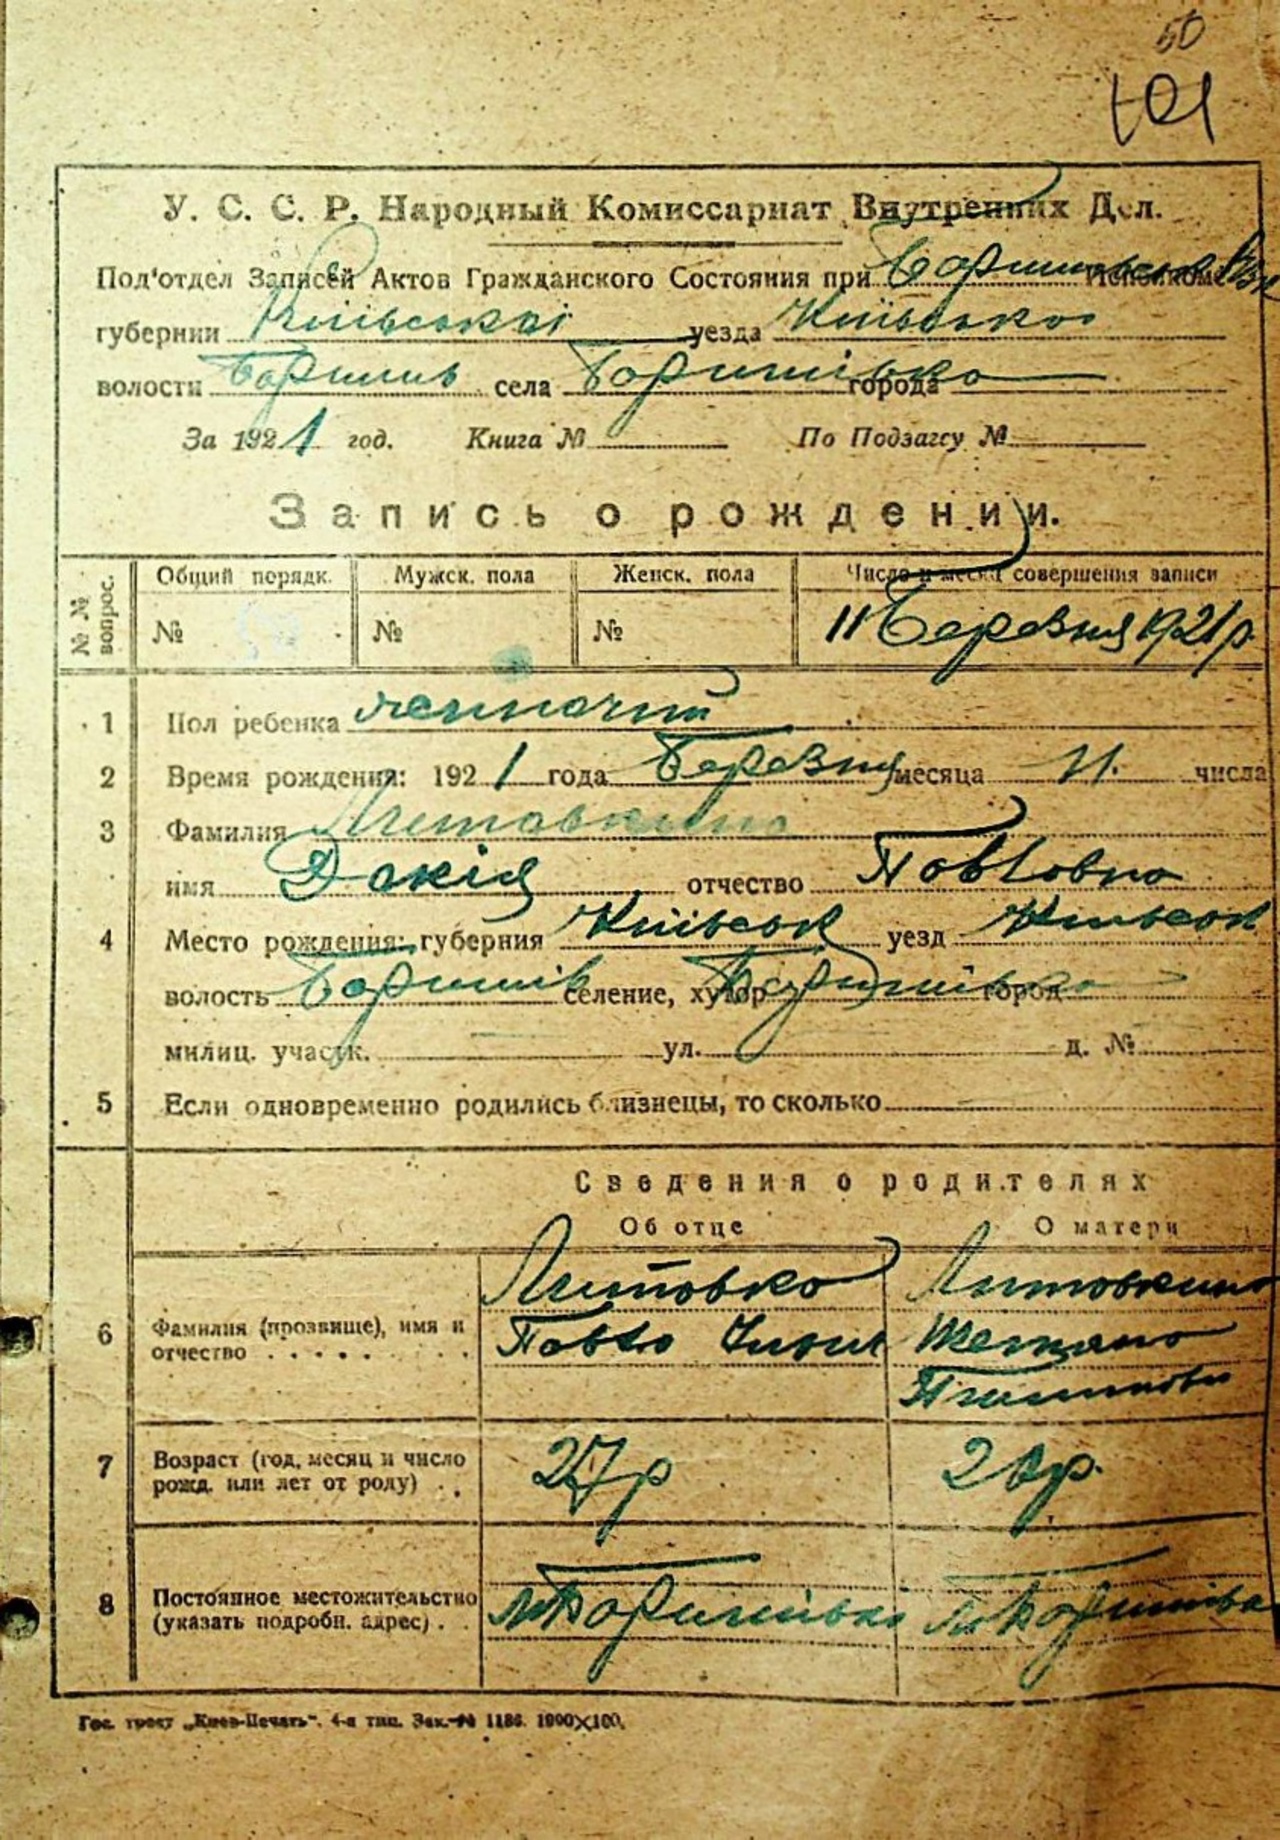 50
101
У. С. С. Р. Народный Комиссариат Внутренних Дел.
Под'отдел Записей Актов Гражданского Состояния при Исполкоме
губернии Київської уезда Київського
волости села Боришівка города
За 1921 год. Книга № По Подзагсу №
Запись о рождении.
№ № вопрос. Общий порядк. Мужск. пола Женск. пола Число и месяц совершения записи
№ № № 11 Березня 1921 р.
1 Пол ребенка жиночий
2 Время рождения: 1921 года Березня месяца 11. числа
3 Фамилия
имя Докія отчество Павловна
4 Место рождения: губерния Київськ уезд Київськ
волость селение, хутор Боришівка город
милиц. участк. ул. д. №
5 Если одновременно родились близнецы, то сколько
Сведения о родителях
Об отце О матери
Литовко
6 Фамилия (прозвище), имя и отчество Павло
Тетяна
7 Возраст (год, месяц и число рожд. или лет от роду) 27 р
8 Постоянное местожительство (указать подробн. адрес) м. Боришівка м. Боришівка
Гос. трест „Киев-Печать“. 4-я тип. Зак. № 1186. 1000×100.